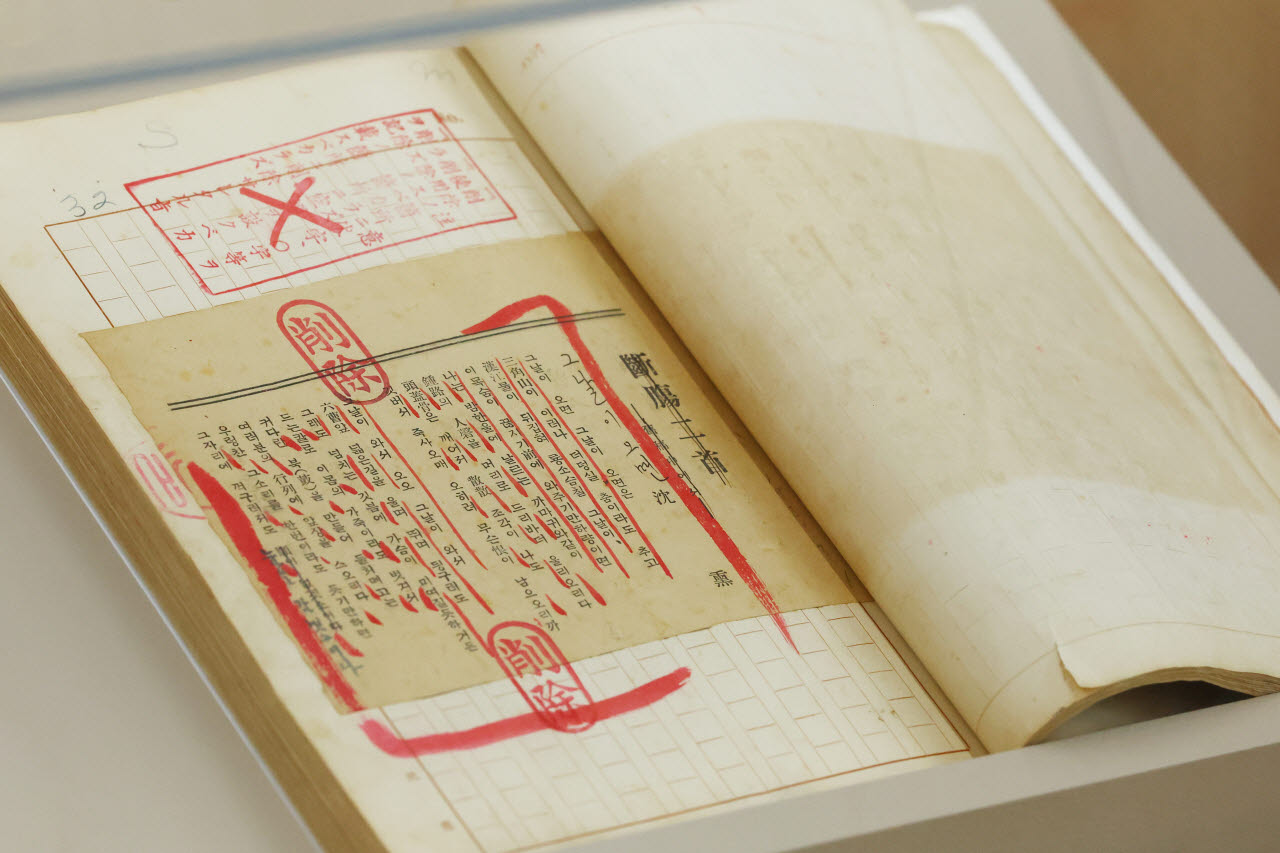 32
削除
削除
斷膓二首
그날이 오면
沈 熏
그날이 오면 그날이 오면은
三角山이 이러나 더덩실 춤이라도 추고
漢江물이 뒤집혀 룡소슴칠 그날이,
이목숨이 끊지기前에 와주기만하량이면
나는 밤한울에 날르는 까마귀와같이
鍾路의 人磬을 머리로 드리바더 울리오리다
頭蓋骨은 깨어저 散散 조각이 나도
깃버서 죽사오매 오히려 무슨恨이 남으오리까
그날이 와서 오오 그날이 와서
六曹앞 넓은길을 울며 뛰며 딍구러도
그래도 넘치는 깃븜에 가슴이 미여질듯하거든
드는칼로 이몸의 가죽이라도 벗겨서
커다란 북(鼓)을 만들어 들처메고는
여러분의 行列에 앞장을 스오리다.
우렁찬 그소리를 한번이라도 듯기만하면
그자리에 꺽구러저도